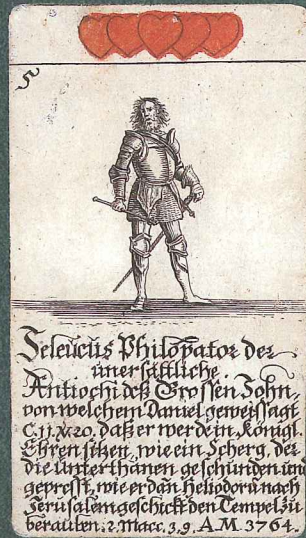 5
Seleucus Philopator der
unersättliche.
Antiochi deß Grossen Sohn,
von welchem Daniel geweissagt
C.11.V.20. daß er werde in Königl.
Ehren sitzen, wie ein Scherg, der
die unterthanen geschunden und
gepresst, wie er dan̄ Heliodorū nach
Jerusalem geschickt den Tempel zu
berauben. 2. Macc. 3,9. A M 3764.